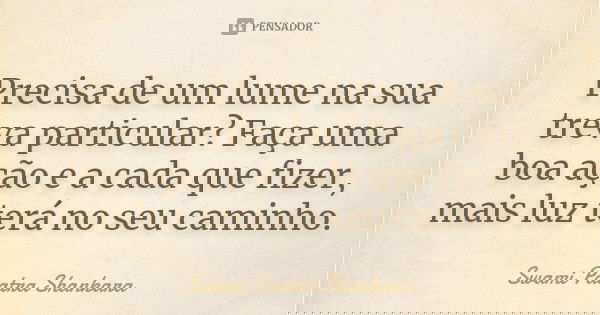 PENSADOR
Precisa de um lume na sua
treva particular? Faça uma
boa ação e a cada que fizer,
mais luz terá no seu caminho.
Swami Paatra Shankara